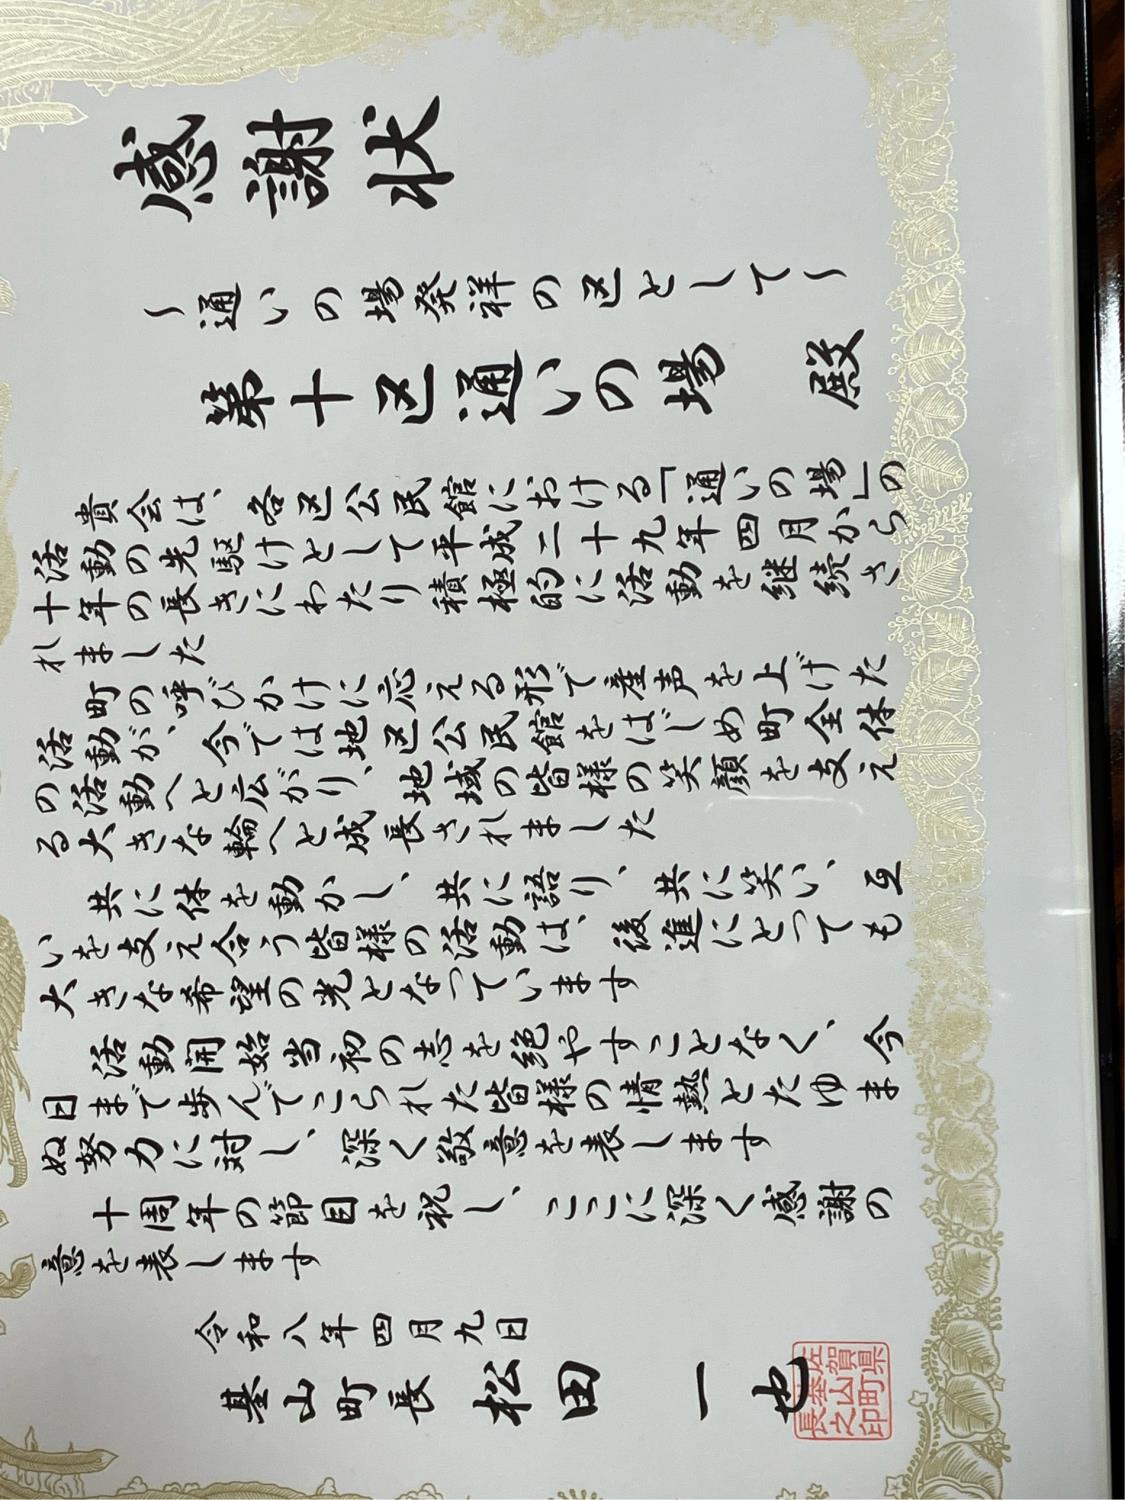 感謝状
～通いの場発祥の区として～
第十区通いの場 殿
貴会は、各区公民館における「通いの場」の
活動の先駆けとして平成二十九年四月から
十年の長きにわたり積極的に活動を継続さ
れました
町の呼びかけに応える形で産声を上げた
活動が、今では地区公民館をはじめ町全体
の活動へと広がり、地域の皆様の笑顔を支え
る大きな輪へと成長されました
共に体を動かし、共に語り、共に笑い、互
いを支え合う皆様の活動は、後進にとっても
大きな希望の光となっています
活動開始当初の志を絶やすことなく、今
日まで歩んでこられた皆様の情熱とたゆま
ぬ努力に対し、深く敬意を表します
十周年の節目を祝し、ここに深く感謝の
意を表します
令和八年四月九日
基山町長 松田 一也
佐賀県
基山町
長之印